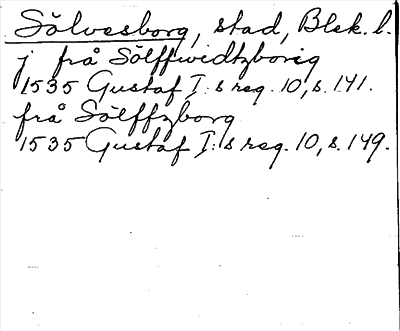 Sölvesborg, stad, Blek. l.
j frå Sölffwidtzborig
1535 Gustaf I:s reg. 10, s. 141.
frå Sölffzborg
1535 Gustaf I:s reg. 10, s. 149.